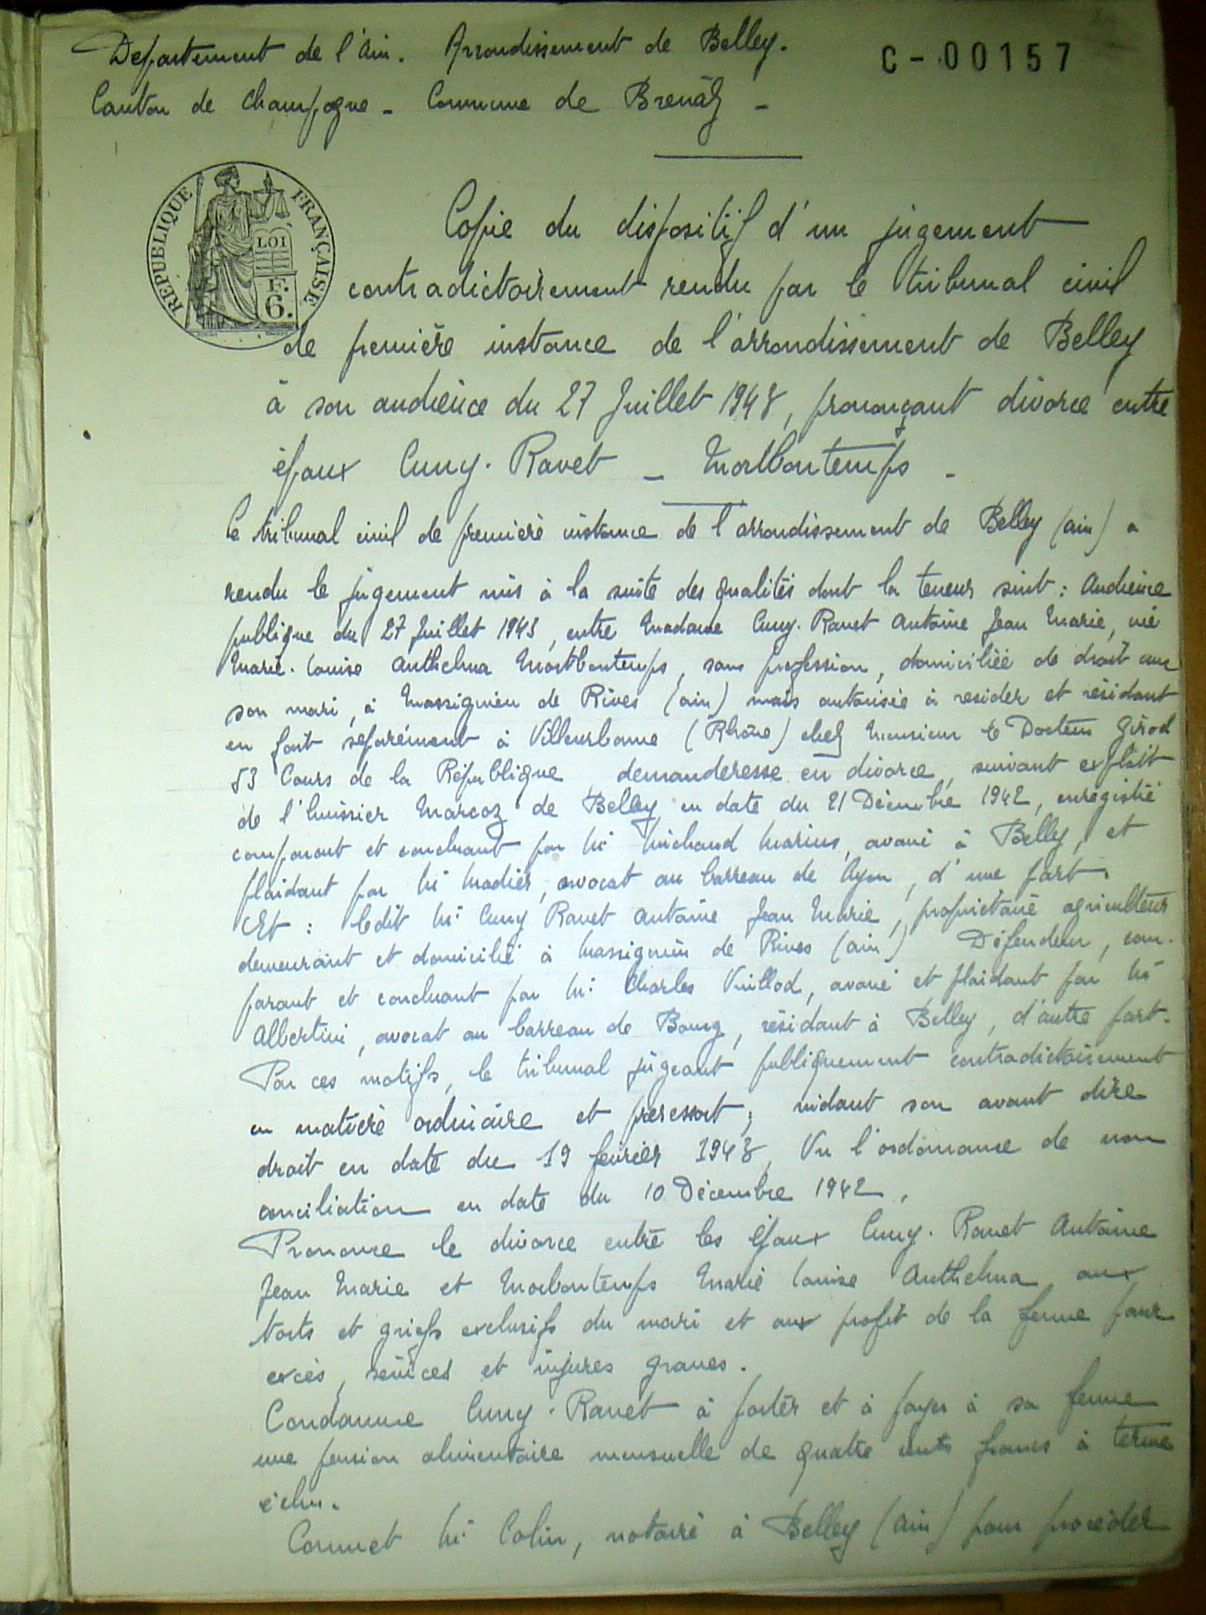 Département de l'Ain. Arrondissement de Belley.
C-00157
Canton de Champagne - Commune de Brenaz -
REPUBLIQUE FRANÇAISE
LOI
F.
6.
Copie du dispositif d'un jugement
contradictoirement rendu par le tribunal civil
de première instance de l'arrondissement de Belley
à son audience du 27 Juillet 1943, prononçant divorce entre
époux Cuny-Ravet - Morbontemps -
Le tribunal civil de première instance de l'arrondissement de Belley (ain) a
rendu le jugement mis à la suite des qualités dont la teneur suit : Audience
publique du 27 Juillet 1943, entre Madame Cuny-Ravet Antoine Jean Marie, née
Marie-Louise Anthelma Morbontemps, sans profession, domiciliée de droit avec
son mari, à Massignieu de Rives (ain) mais autorisée à resider et résidant
en fait séparément à Villeurbanne (Rhône) chez Monsieur le Docteur Girod
53 Cours de la République demanderesse en divorce, suivant exploit
de l'huissier Marcoz de Belley en date du 21 Décembre 1942, enregistré
comparant et concluant par Me Michaud Marius, avoué à Belley, et
plaidant par Me Madier, avocat au barreau de Lyon, d'une part.
Et : ledit Mr Cuny Ravet Antoine Jean Marie, propriétaire agriculteur
demeurant et domicilié à Massignieu de Rives (ain) Défendeur, com-
parant et concluant par Me Charles Vuillod, avoué et plaidant par Me
Albertini, avocat au barreau de Bourg, résidant à Belley, d'autre part.
Par ces motifs, le tribunal jugeant publiquement contradictoirement
en matière ordinaire et pr ressort; vidant son avant dire
droit en date du 19 février 1943, Vu l'ordonnance de non
conciliation en date du 10 Décembre 1942,
Prononce le divorce entre les époux Cuny-Ravet Antoine
Jean Marie et Morbontemps Marie Louise Anthelma aux
torts et griefs exclusifs du mari et aux profit de la femme pour
excès, sévices et injures graves.
Condamne Cuny-Ravet à porter et à payer à sa femme
une pension alimentaire mensuelle de quatre cents francs à terme
échu.
Commet Me Colin, notaire à Belley (ain) pour procéder